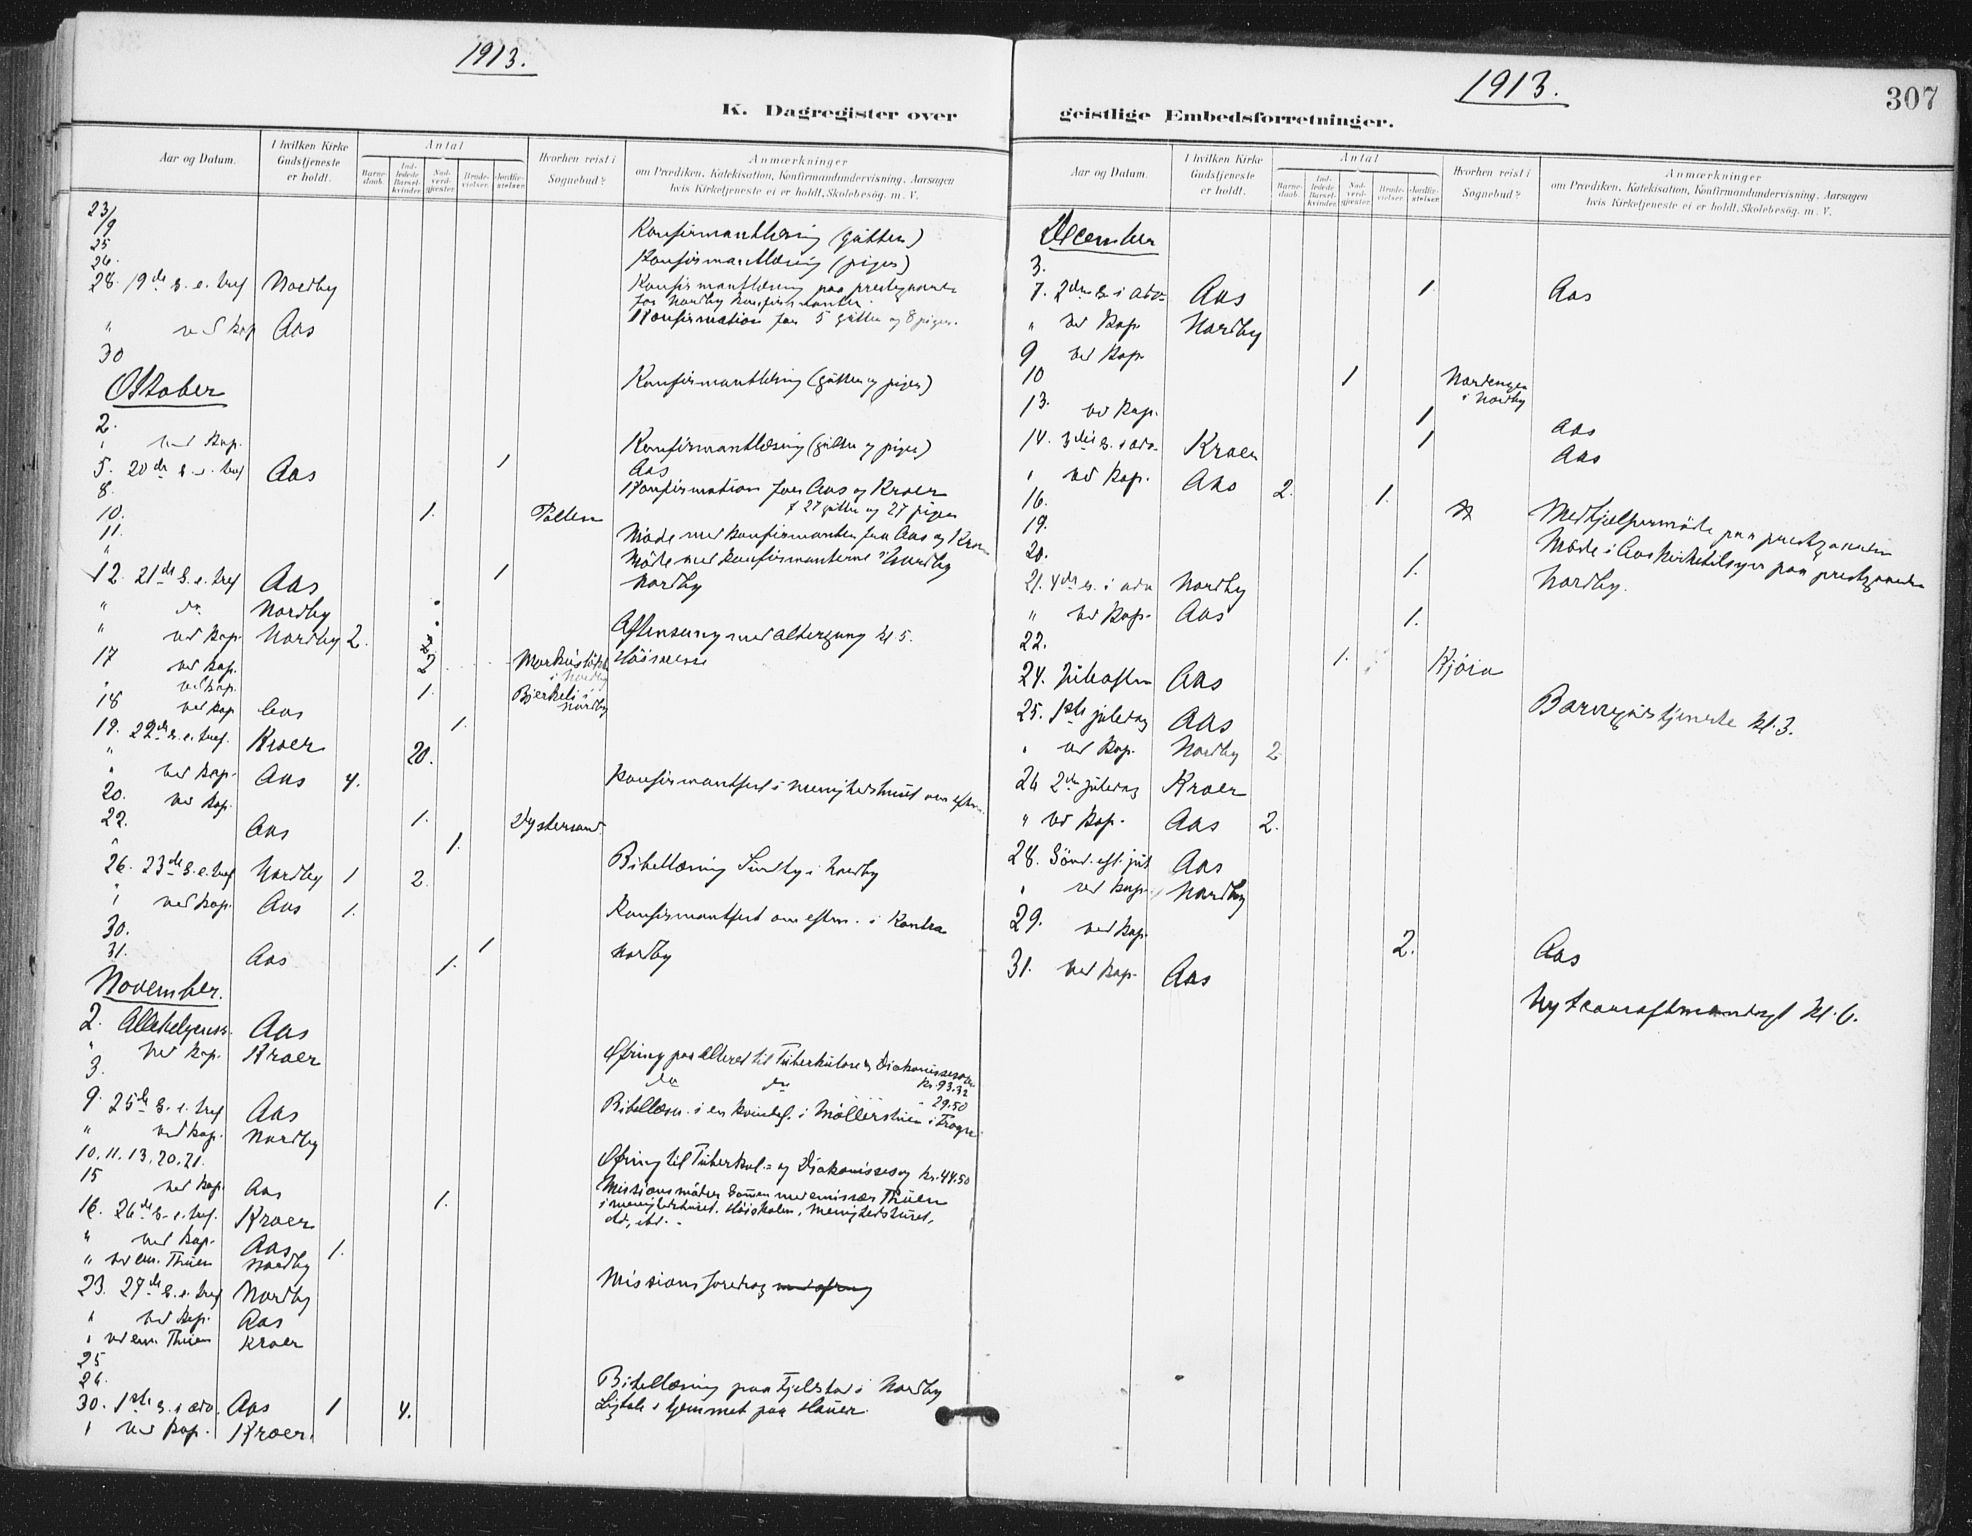 1913.
K. Dagregister over
Aar og Datum.
I hvilken Kirke Gudstjeneste er holdt.
Antal
Barnedaab.
Indledede Barselkvinder.
Nadverdgjester.
Brudevielser.
Jordfæstelser.
Hvorhen reist i Sognebud?
Anmærkninger
om Prædiken, Katekisation, Konfirmandundervisning, Aarsagen
hvis Kirketjeneste ei er holdt, Skolebesøg. m. V.
23/9 Konfirmantlæsning (gutter)
25 Konfirmantlæsning (piger)
26. Konfirmantlæsning paa prestegaarden
for Nordby konfirmanter.
28. 19de s. e. tref Nordby Konfirmation for 5 gutter og 8 piger.
" ved kap Aas
30 Konfirmantlæsning (gutter og piger)
Oktober
2. Konfirmantlæsning (gutter og piger)
" ved kap. 1 Aas
5. 20de s. e. tref Aas Konfirmation for Aas og Kroer
27 gutter og 27 piger
8. 1.
10. Møde med konfirmanten fra Aas og Kroer
11. Møde med konfirmanterne i Nordby
" 1 Nordby
12. 21de s. e. tref Aas
" do Nordby Aftensang med altergang kl 5.
" ved kap. Nordby 2. Høimesse
17 ved kap. 2 i Nordby
" ved kap. 1. Bjerkeli i Nordby
18 ved kap Aas 1.
19. 22de s. e. tref. Kroer 20.
" ved kap. Aas 4. Konfirmantfest i menighedshuset om eftm.
20. ved kap. 1. Dystersand.
22. Aas 1.
" Bibellæsning Sundby i Nordby
26. 23de s. e. tref Nordby 1 2.
" ved kap. Aas 1. Konfirmantfest om eftm. i Kontra
30. 1 Nordby
31. Aas 1.
November.
2. Allehelgensd. Aas Ofring paa alteret til Tuberkulose & Diakonissesag
kr. 93.32
" ved kap. Kroer do do " 29.50
3. Bibellæsn. i en kvindef. i Møllerstuen i Frogn
9. 25de s. e. tref Aas
" ved kap. Nordby Ofring til Tuberkul.= og Diakonissesag kr. 44.50
10. 11. 13. 20. 21. Missionsmøder sammen med emissær Thuen
i menighedshuset, Høiskolen, menighedshuset,
15 ved kap Aas 1.
16. 26de s. e. tref. Kroer
" ved kap. Aas 1.
" ved em. Thuen Nordby
23. 27de s. e. tref Nordby Missionsforedrag med ofring
" ved kap. Aas
" ved em. Thuen Kroer
25
26. Bibellæsning paa Fjeldstad i Nordby
Ligtale i hjemmet paa Hauer.
30. 1ste s. i adv. Aas 1 4.
" ved kap. Kroer.
1913.
307
geistlige Embedsforretninger.
Aar og Datum.
I hvilken Kirke Gudstjeneste er holdt.
Antal
Barnedaab.
Indledede Barselkvinder.
Nadverdgjester.
Brudevielser.
Jordfæstelser.
Hvorhen reist i Sognebud?
Anmærkninger
om Prædiken, Katekisation, Konfirmandundervisning, Aarsagen
hvis Kirketjeneste ei er holdt, Skolebesøg. m. V.
December
3. 1. Aas
7. 2den s. i adv. Aas
" ved kap. Nordby
9 ved kap.
10 1 Nordengen i Nordby
13. ved kap. 1 Aas
14. 3die s. i adv. Kroer 1 Aas
" ved kap. Aas 2. 1.
16. Medhjælpermøde paa prestegaarden
19. Møde i Aas kirketilsyn paa prestegaarden
20. 1. Nordby.
21. 4de s. i adv Nordby
" ved kap. Aas 1.
22. 1. Kjøia
24. Juleaften Aas Barnegudstjeneste kl. 3.
25. 1ste juledag Aas
" ved kap. Nordby 2
26 2den juledag Kroer
" ved kap. Aas 2.
28. Sønd. eft. jul Aas
" ved kap. Nordby
29. ved kap. 2. Aas
31. ved kap. Aas Nytaarsaftensandagt kl. 6.